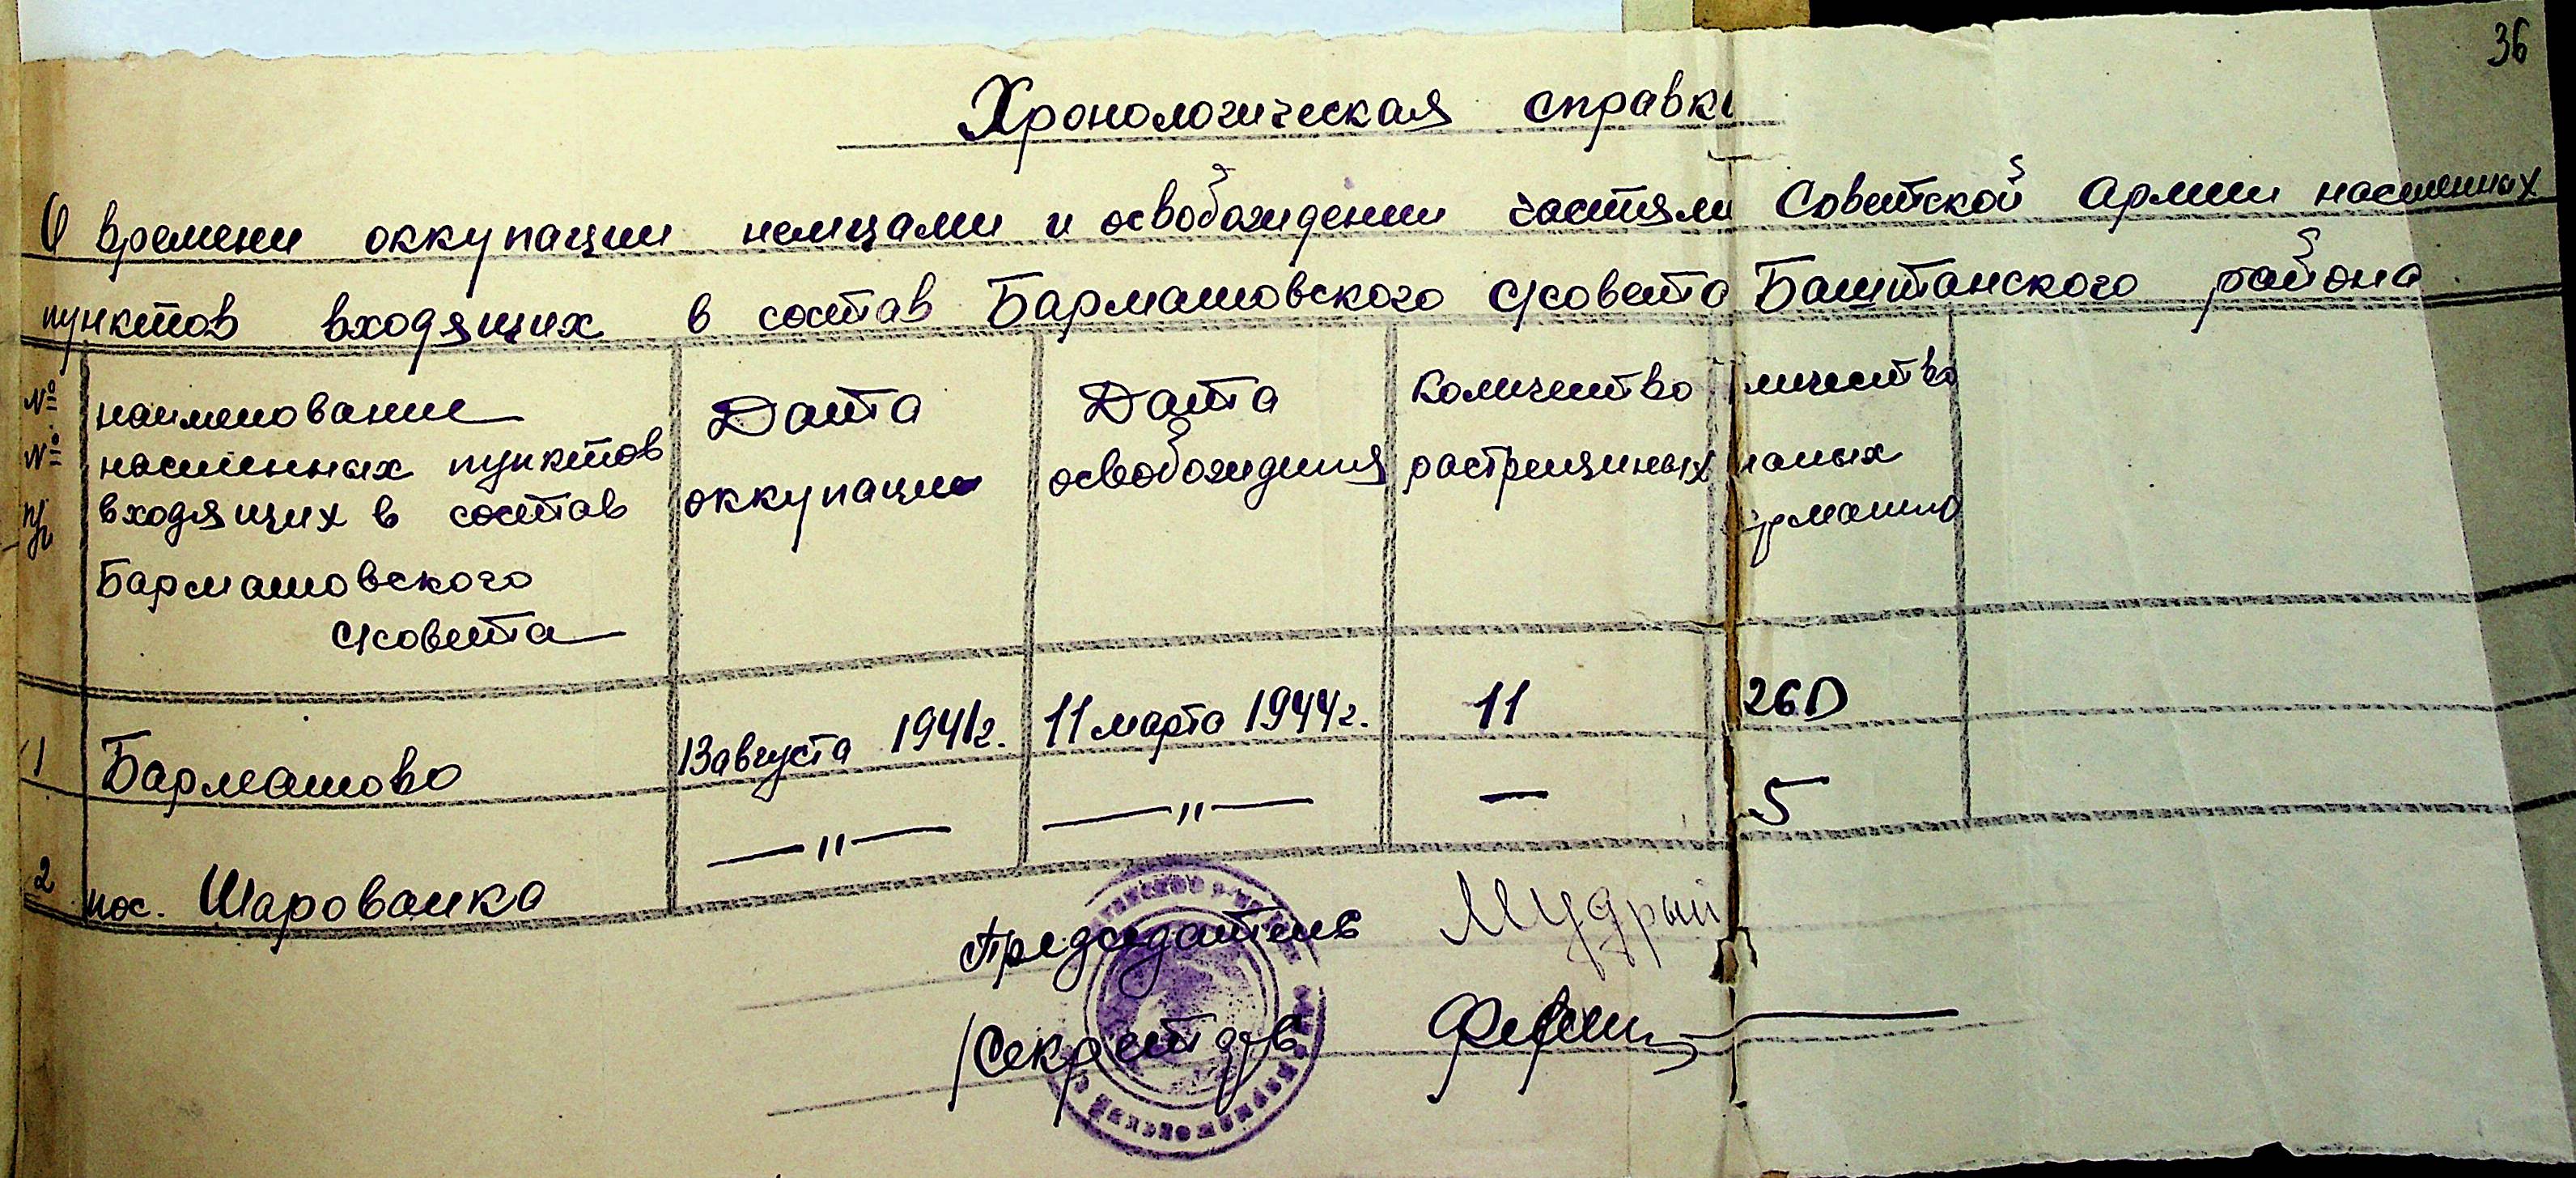 36
Хронологическая справк
О времени оккупации немцами и освобождении частями Советской Армии населенных
пунктов входящих в состав Бармашовского с/совета Баштанского района
№ № п/п
наименование
населенных пунктов
входящих в состав
Бармашовского
с/совета
Дата
оккупации
Дата
освобождения
Количество
растреляных
личество
наных
ерманию
1 Бармашово 13 августа 1941г. 11 марта 1944г. 11 260
2 пос. Шарованка —"— —"— — 5
Председатель Мудрый
Секретарь